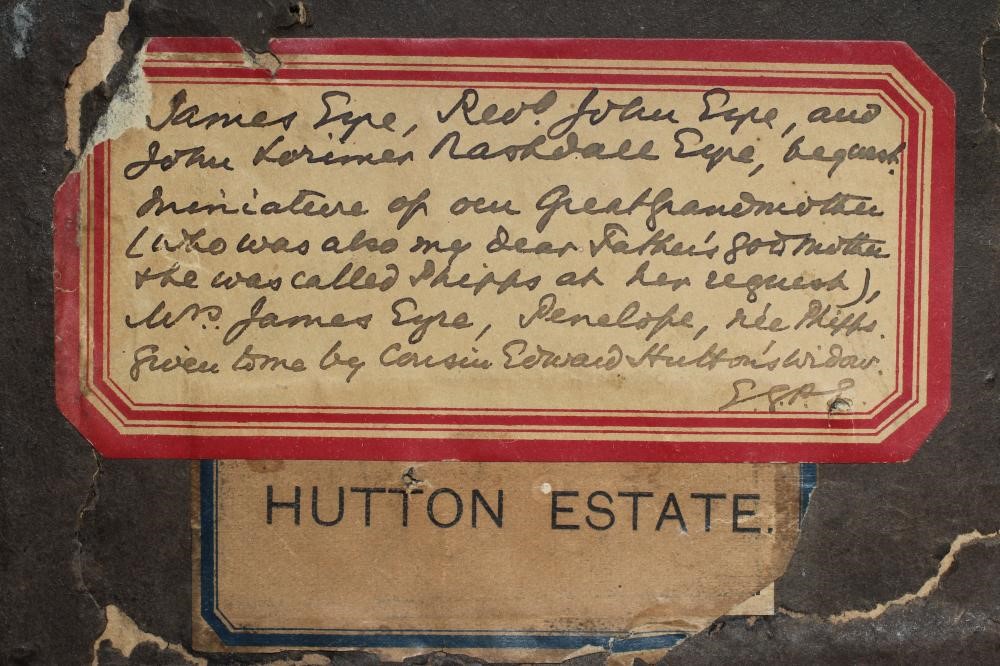 James Eyre, Revd. John Eyre, and
John Lorimer Rashdall Eyre, bequest.
Miniature of our Great Grandmother
(who was also my dear Father's godmother
& he was called Phipps at her request),
Mrs. James Eyre, Penelope, née Phipps.
given to me by Cousin Edward Hutton's widow.
HUTTON ESTATE.